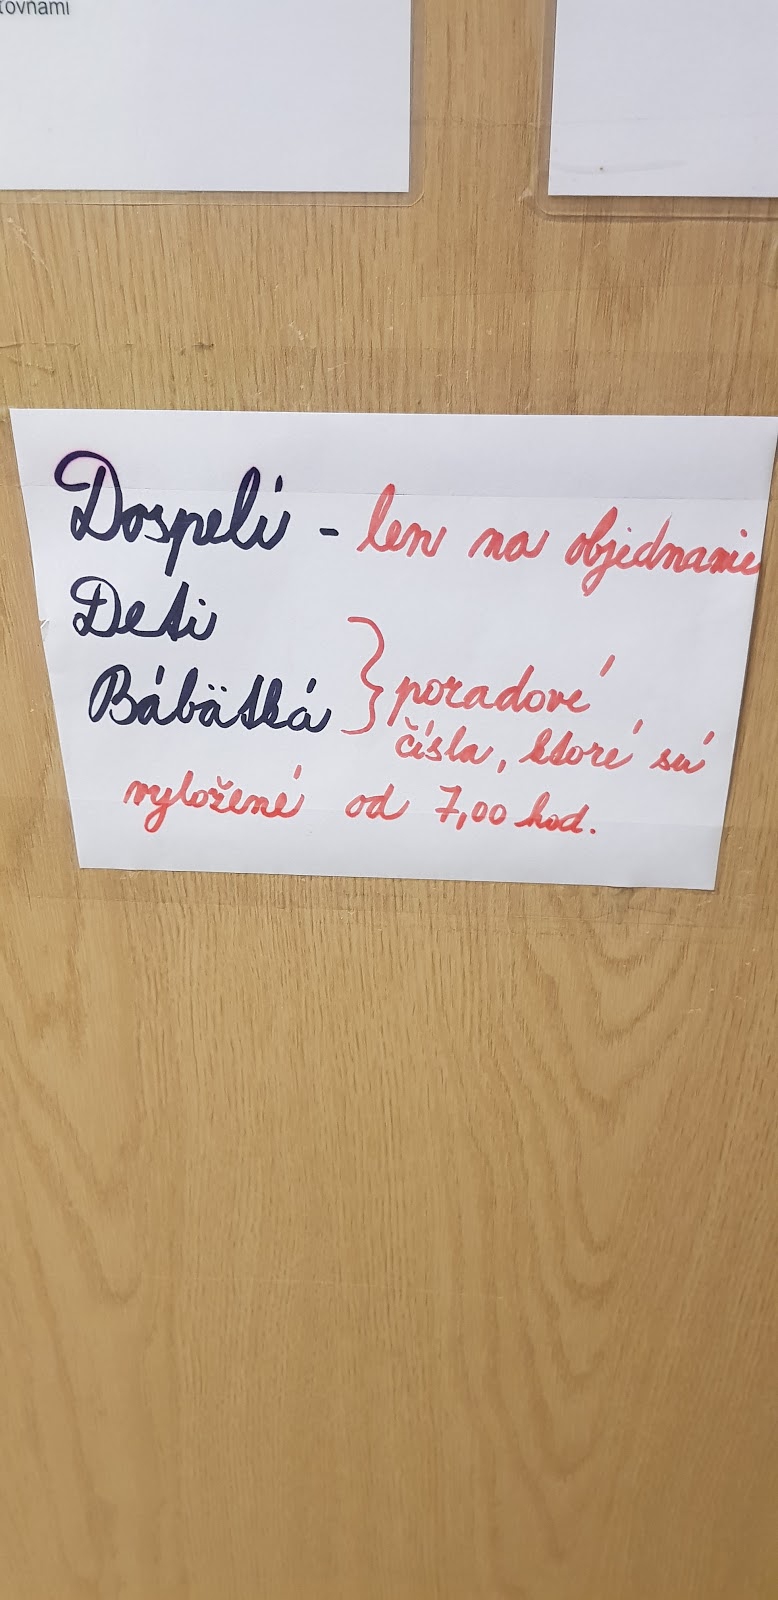 Dospelí - len na objednanie
Deti
Bábätká } poradové
čísla, ktoré sú
vyložené od 7,00 hod.